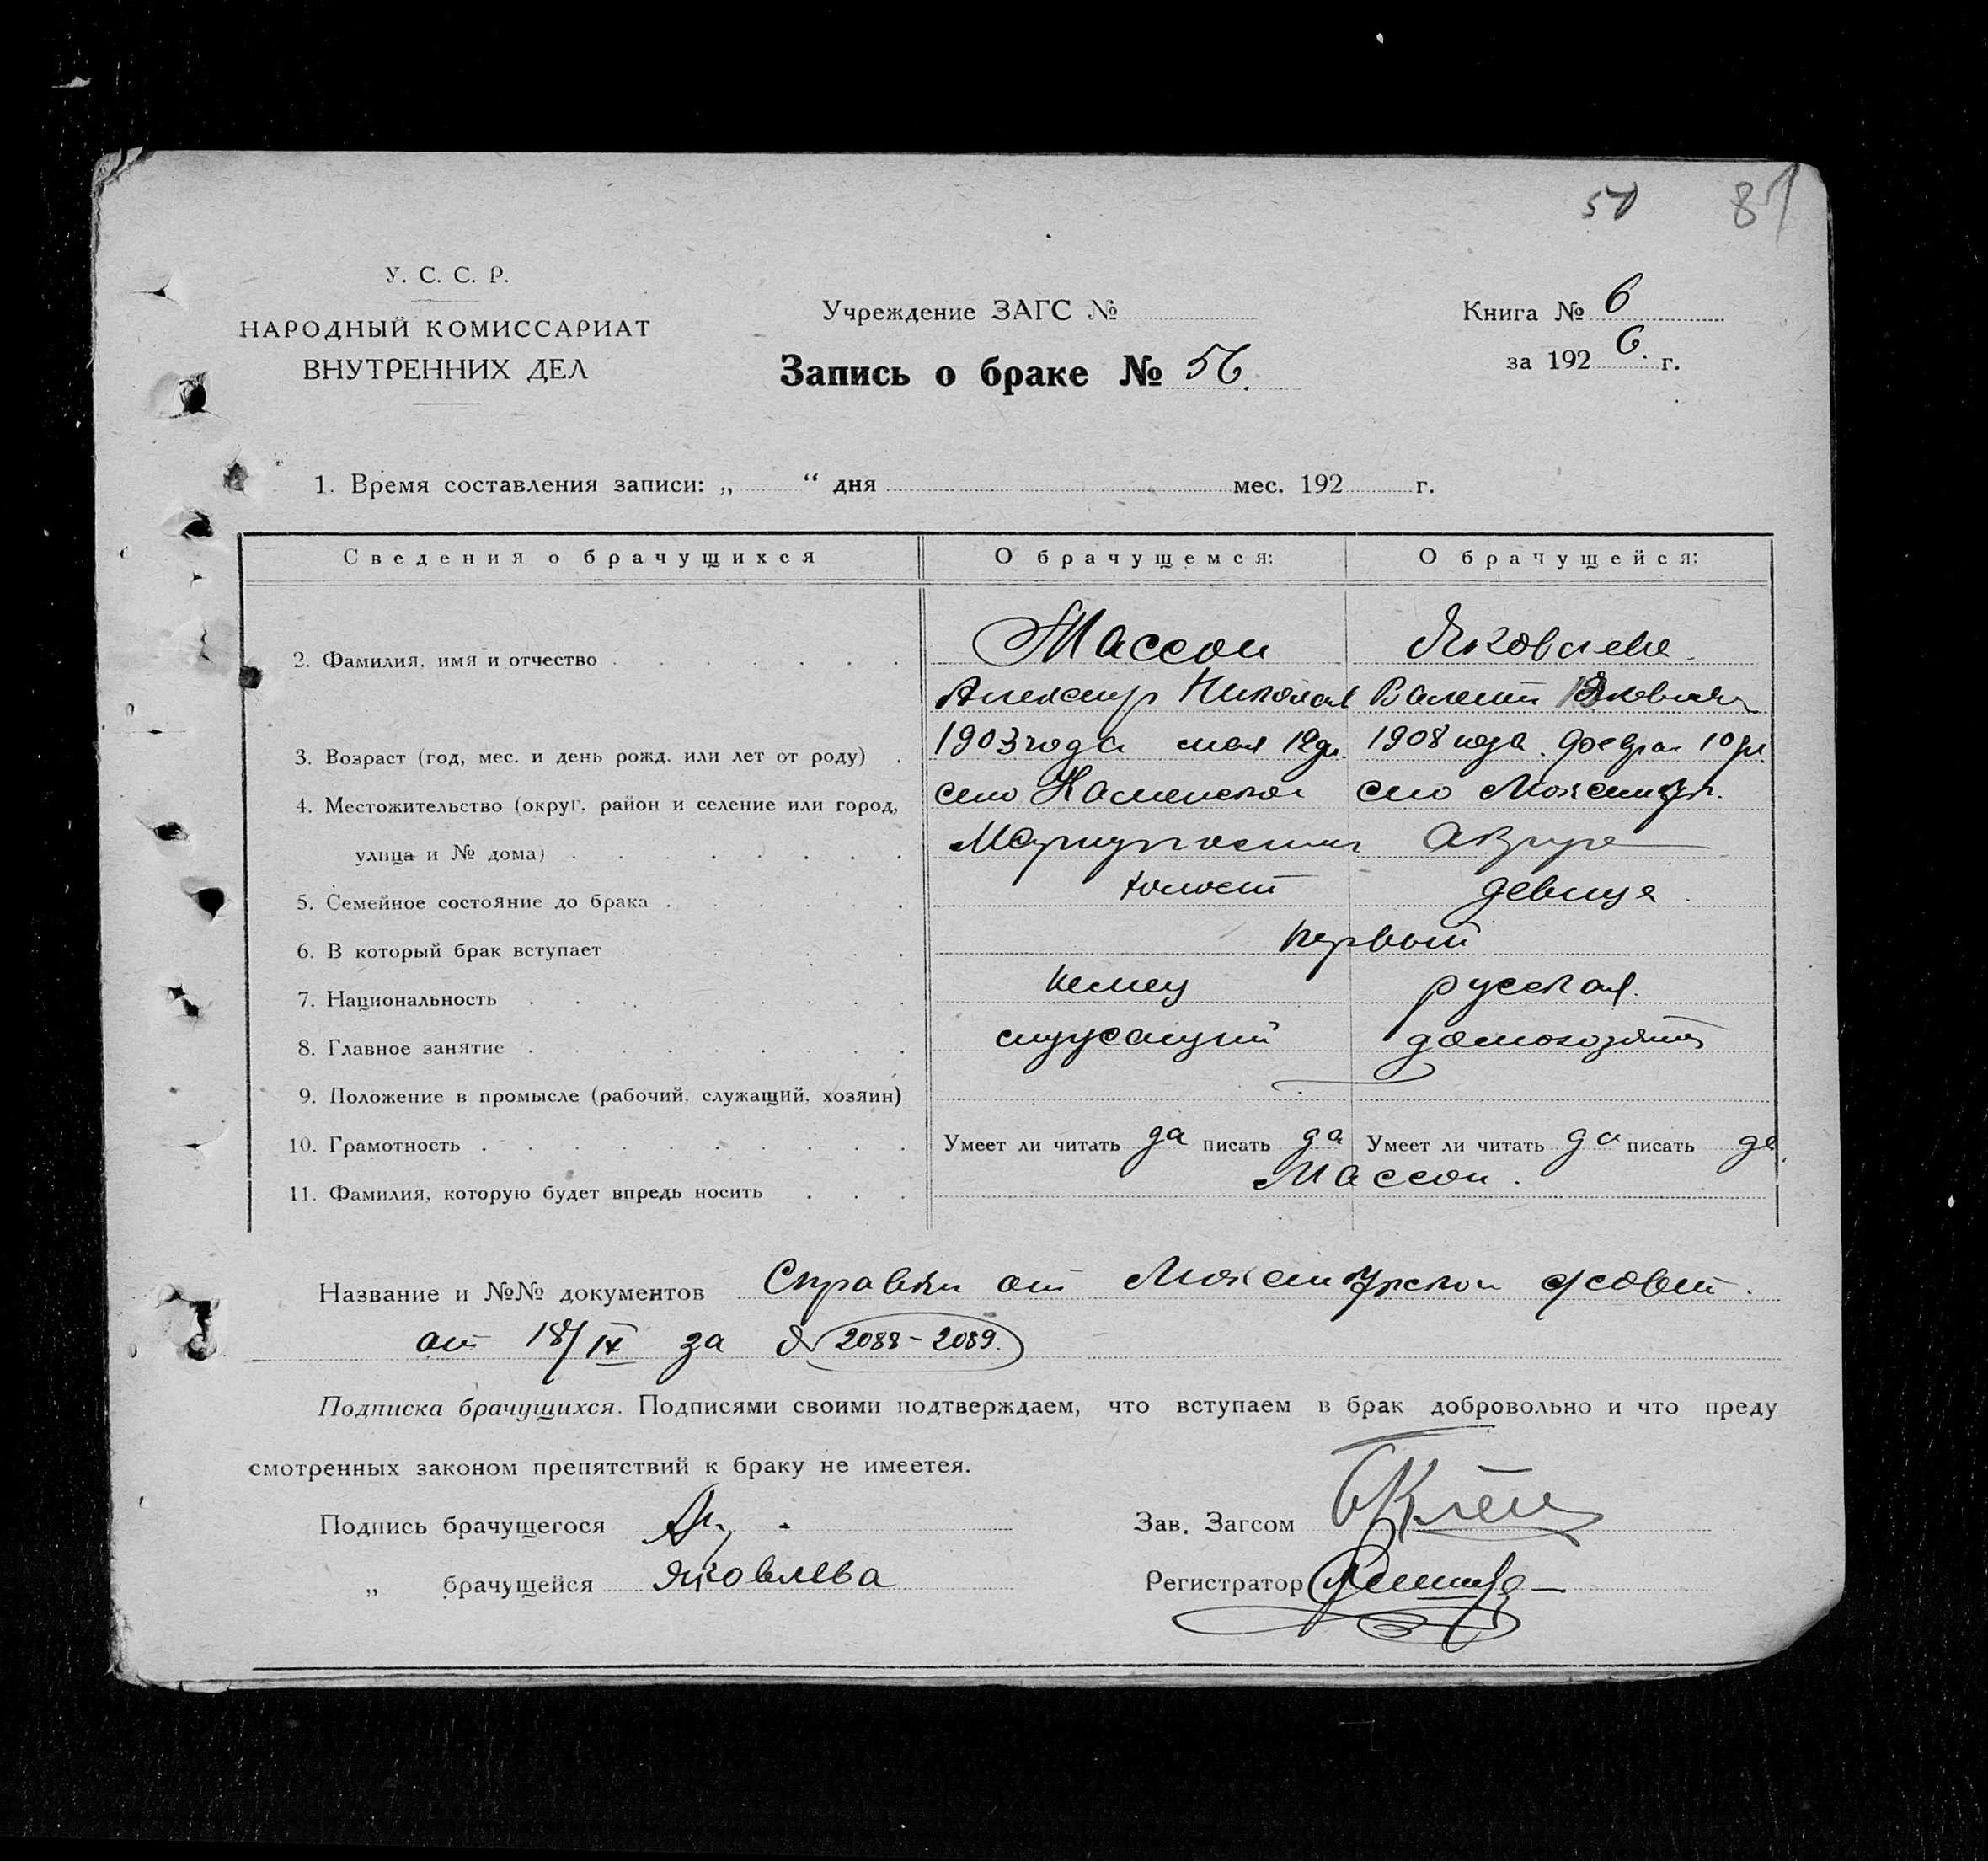 50 87
У. С. С. Р.
НАРОДНЫЙ КОМИССАРИАТ
ВНУТРЕННИХ ДЕЛ
Учреждение ЗАГС №
Запись о браке № 56.
Книга № 6
за 1926. г.
1. Время составления записи: „ “ дня мес. 192 г.
Сведения о брачущихся О брачущемся: О брачущейся:
2. Фамилия, имя и отчество Массон Яковлева
Александр Николаев Валент Яковлевн
3. Возраст (год, мес. и день рожд. или лет от роду) 1903 года мая 12 дн. 1908 года феврал 10 дн.
4. Местожительство (округ, район и селение или город, село Каменское село
улица и № дома) Мариупольский округа
5. Семейное состояние до брака холост девица
6. В который брак вступает первый
7. Национальность немец русская
8. Главное занятие служащий домохозяйка
9. Положение в промысле (рабочий, служащий, хозяин)
10. Грамотность Умеет ли читать да писать да Умеет ли читать да писать да
11. Фамилия, которую будет впредь носить Массон.
Название и №№ документов Справки от
от 18/IX за № 2088-2089.
Подписка брачущихся. Подписями своими подтверждаем, что вступаем в брак добровольно и что преду
смотренных законом препятствий к браку не имеется.
Подпись брачущегося Зав. Загсом
„ брачущейся Яковлева Регистратор